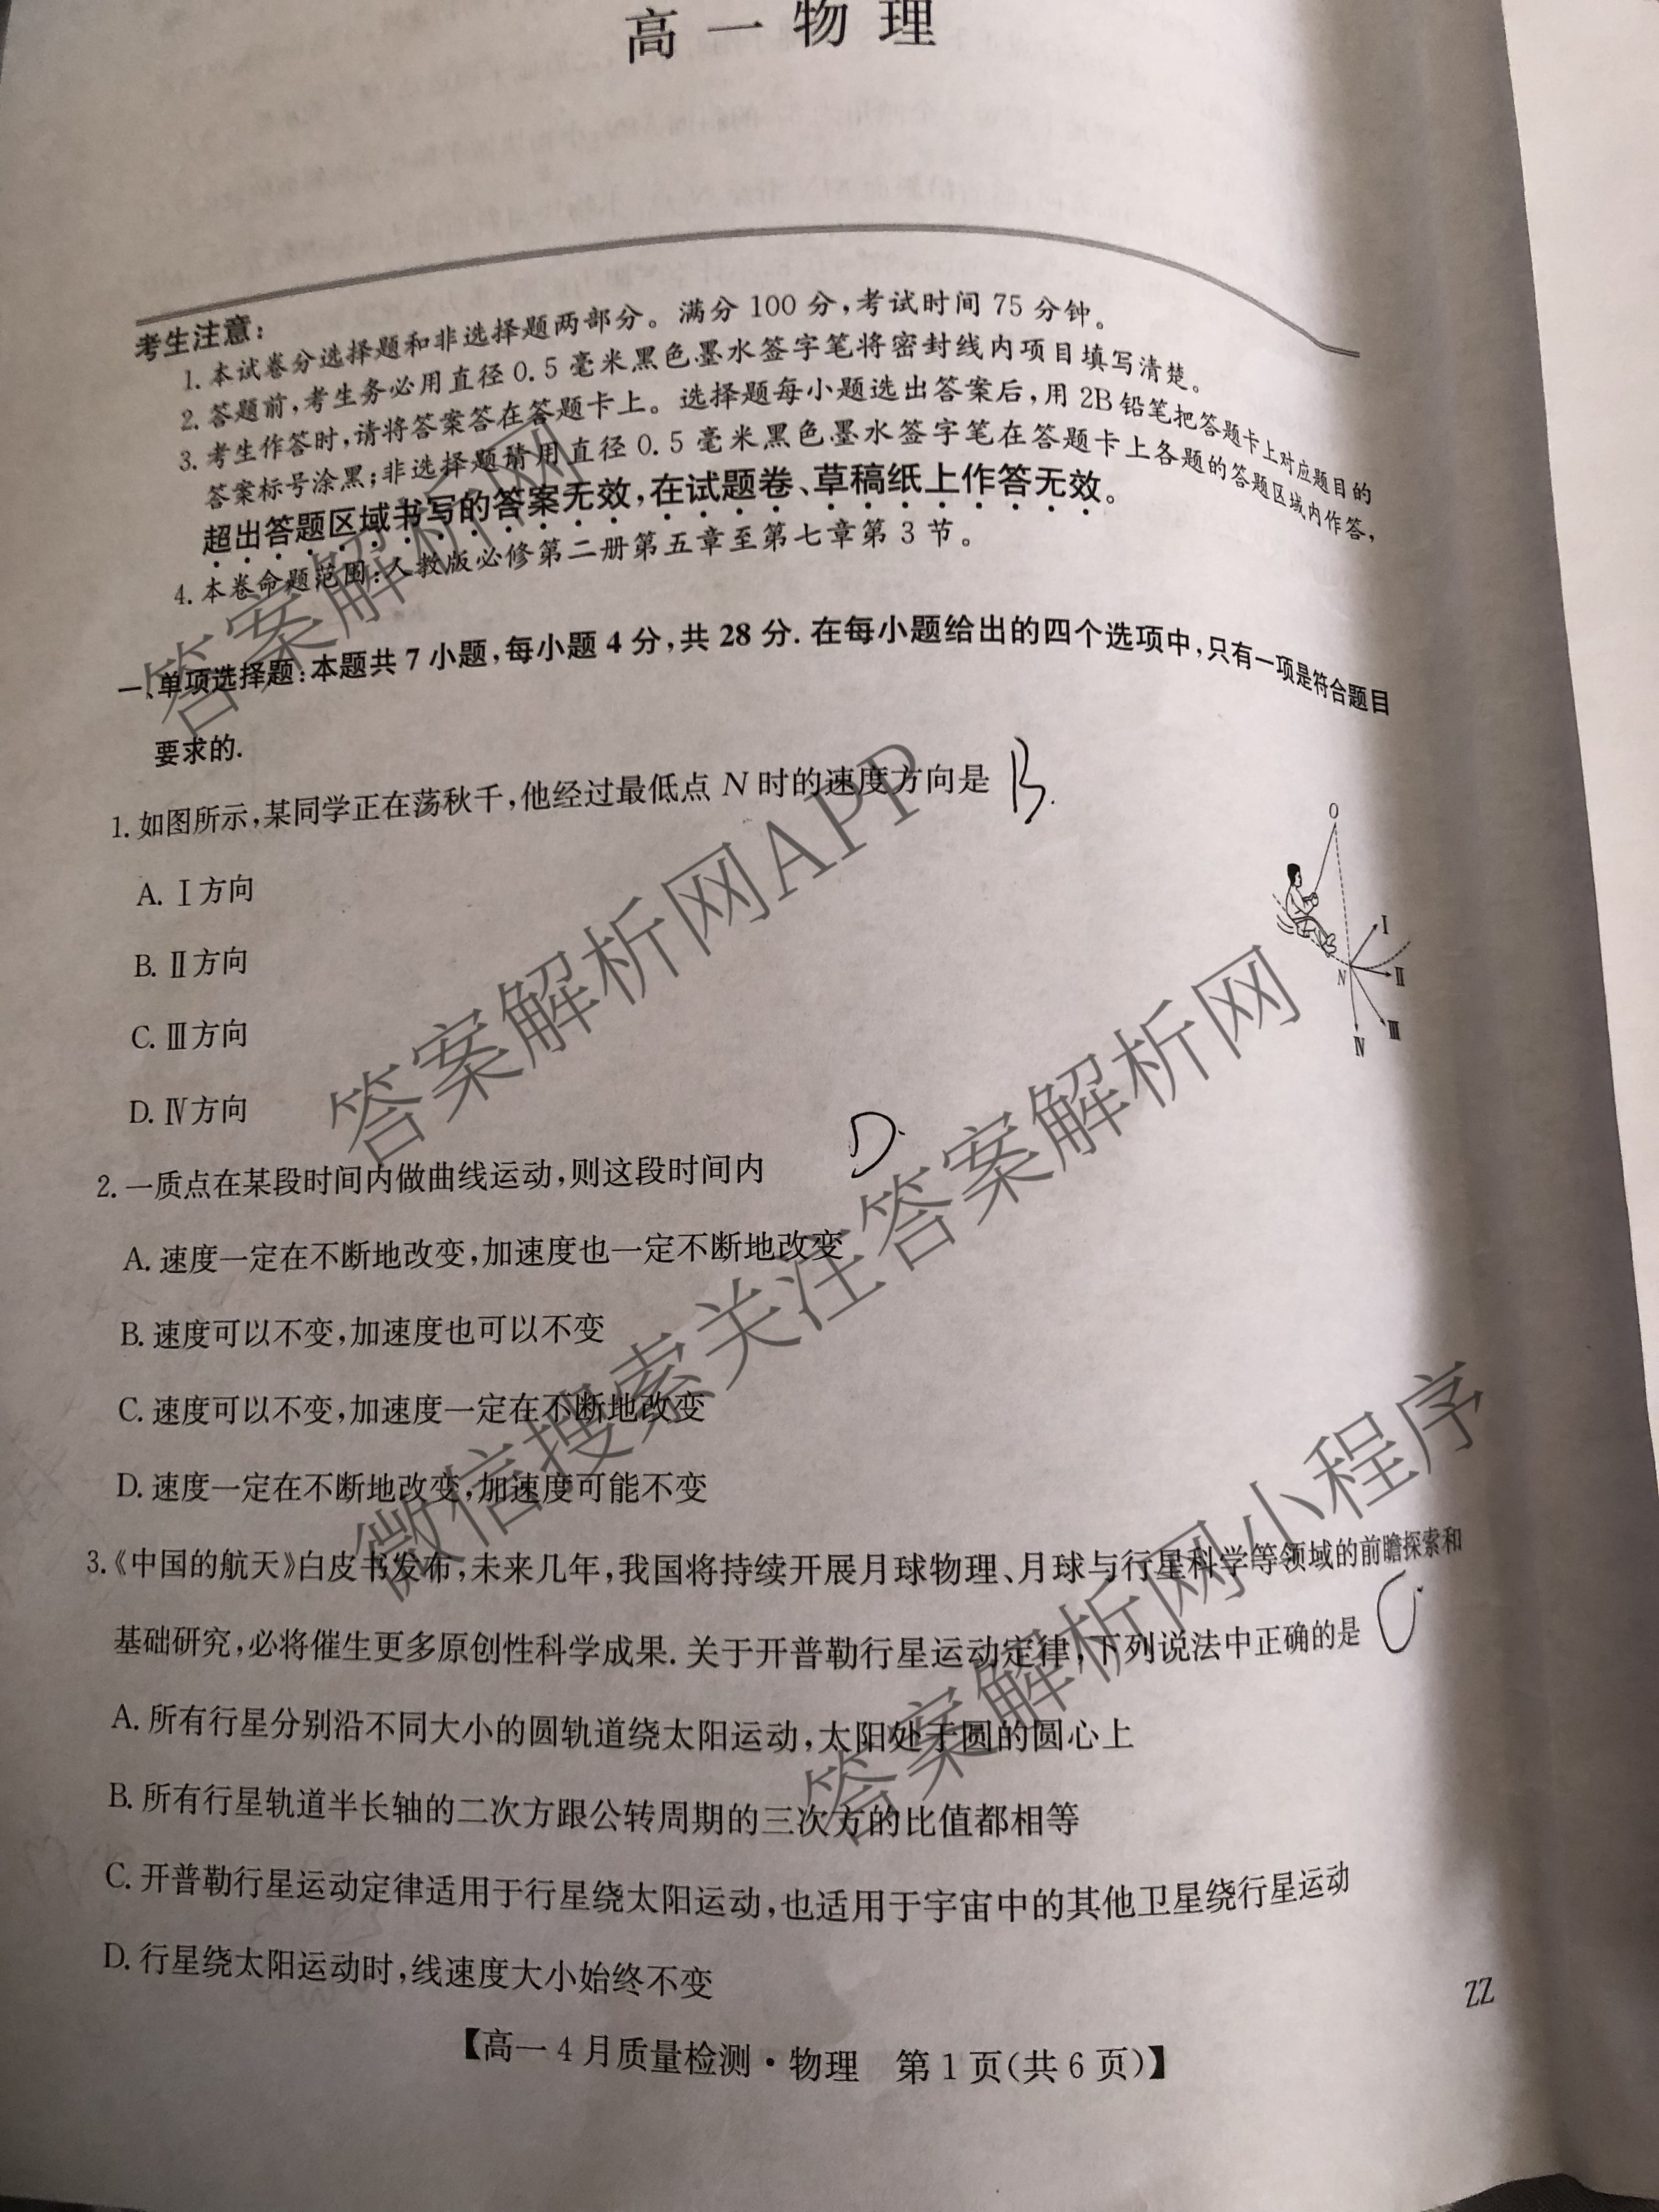 高一物理
考生注意:
1. 本试卷分选择题和非选择题两部分。满分 100 分,考试时间 75 分钟。
2. 答题前,考生务必用直径 0.5 毫米黑色墨水签字笔将密封线内项目填写清楚。
3. 考生作答时,请将答案答在答题卡上。选择题每小题选出答案后,用 2B 铅笔把答题卡上对应题目的
答案标号涂黑;非选择题请用直径 0.5 毫米黑色墨水签字笔在答题卡上各题的答题区域内作答,
超出答题区域书写的答案无效,在试题卷、草稿纸上作答无效。
4. 本卷命题范围:人教版必修第二册第五章至第七章第 3 节。
一、单项选择题:本题共 7 小题,每小题 4 分,共 28 分. 在每小题给出的四个选项中,只有一项是符合题目
要求的.
1. 如图所示,某同学正在荡秋千,他经过最低点 N 时的速度方向是 B.
A. Ⅰ方向
B. Ⅱ方向
C. Ⅲ方向
D. Ⅳ方向
O
Ⅰ
N
Ⅱ
Ⅲ
Ⅳ
2. 一质点在某段时间内做曲线运动,则这段时间内 D.
A. 速度一定在不断地改变,加速度也一定不断地改变
B. 速度可以不变,加速度也可以不变
C. 速度可以不变,加速度一定在不断地改变
D. 速度一定在不断地改变,加速度可能不变
3.《中国的航天》白皮书发布,未来几年,我国将持续开展月球物理、月球与行星科学等领域的前瞻探索和
基础研究,必将催生更多原创性科学成果. 关于开普勒行星运动定律,下列说法中正确的是 C.
A. 所有行星分别沿不同大小的圆轨道绕太阳运动,太阳处于圆的圆心上
B. 所有行星轨道半长轴的二次方跟公转周期的三次方的比值都相等
C. 开普勒行星运动定律适用于行星绕太阳运动,也适用于宇宙中的其他卫星绕行星运动
D. 行星绕太阳运动时,线速度大小始终不变
【高一 4 月质量检测·物理 第 1 页(共 6 页)】
ZZ
答案解析网
答案解析网APP
微信搜索关注答案解析网
答案解析网小程序